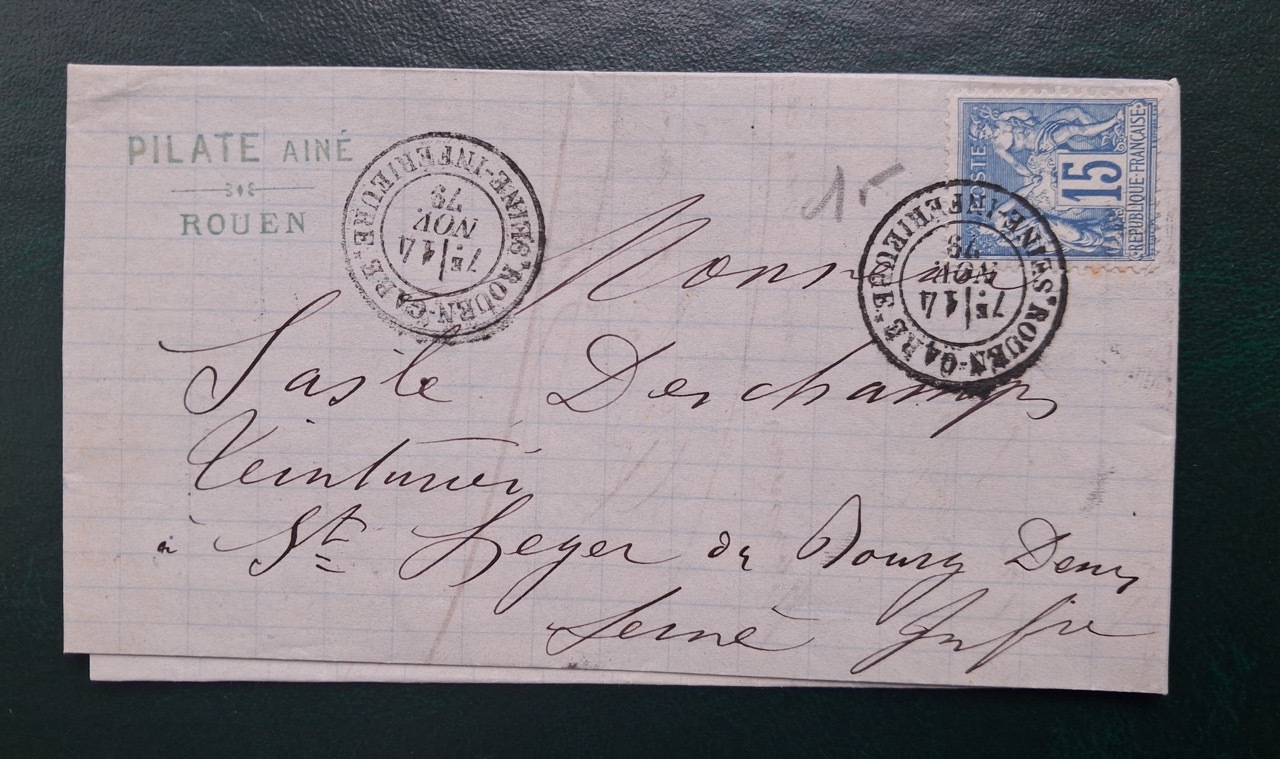 PILATE AINÉ
ROUEN
ROUEN-GARE SEINE-INFERIEURE
7E 14
NOV
79
POSTE
15
REPUBLIQUE-FRANÇAISE
15
ROUEN-GARE SEINE-INFERIEURE
7E 14
NOV
79
Monsieur
Deschamps
Teinturier
à St Leger de Bourg Deny
Seine Infre